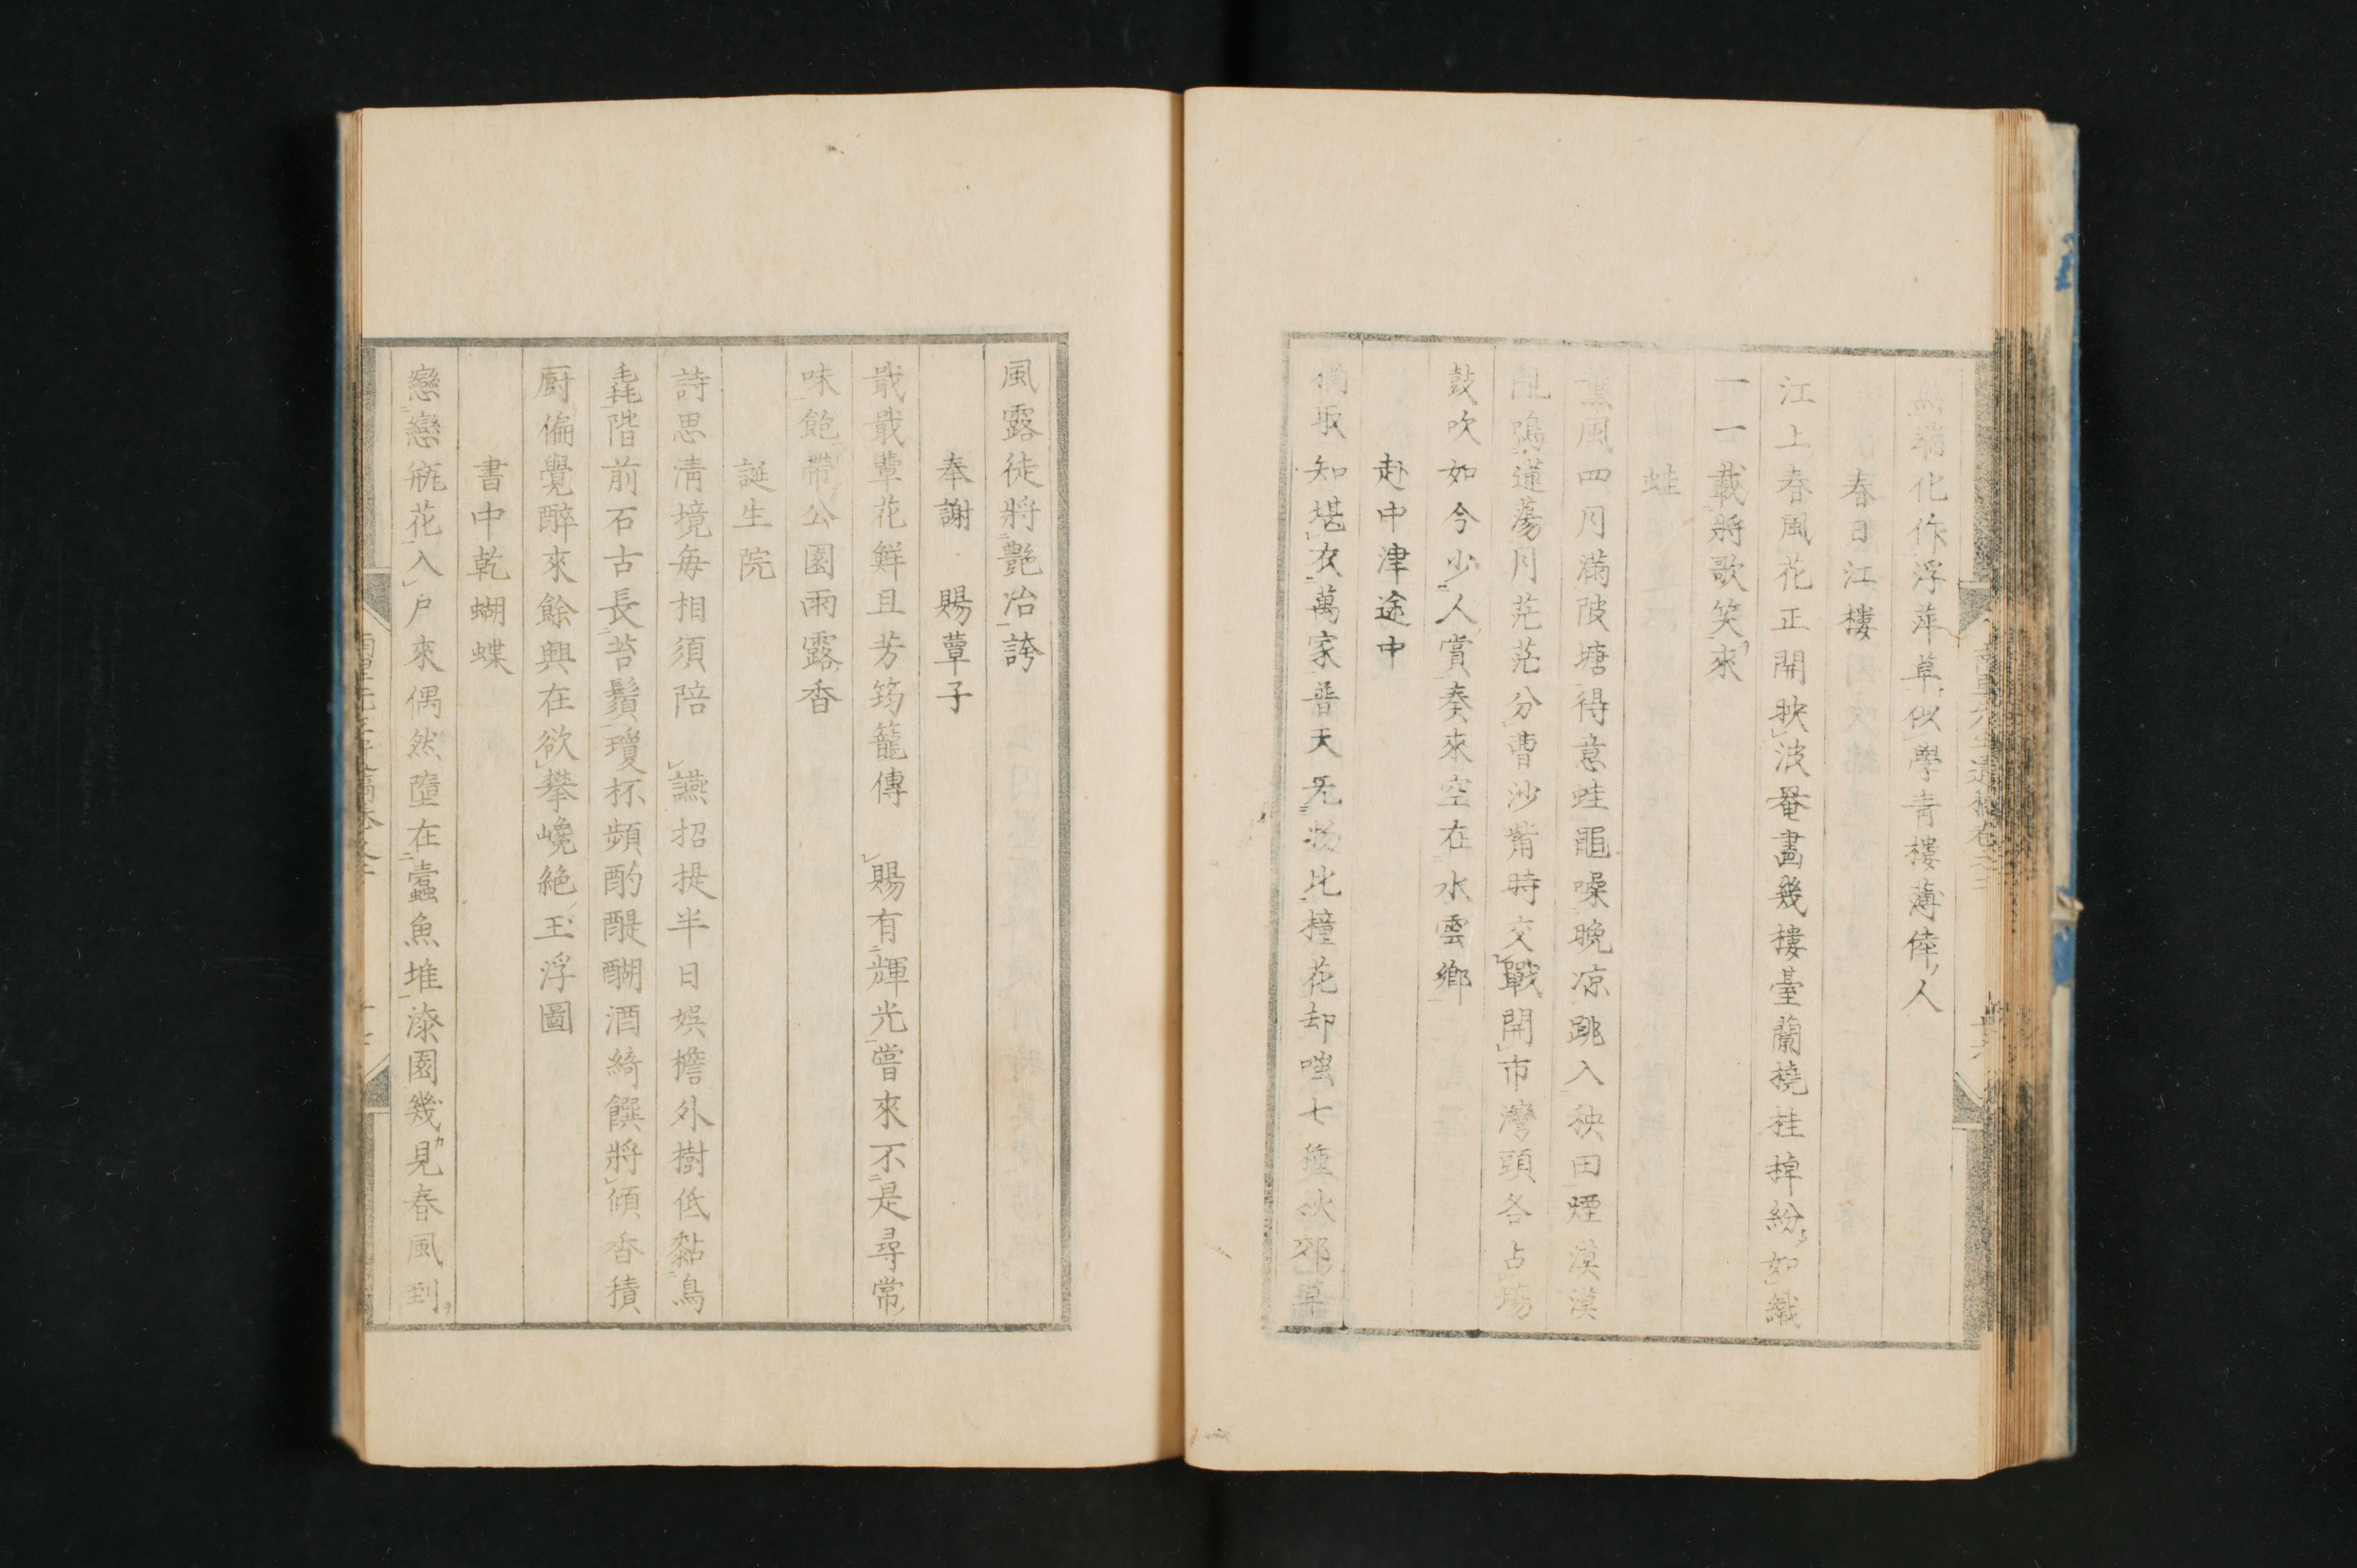 無端化作浮萍草似學青樓薄倖人
春日江樓
江上春風花正開映波罨畫幾樓臺蘭橈桂棹紛如織
一一載將歌笑來
蛙
薫風四月滿陂塘得意蛙黽噪晚凉跳入秧田煙漠漠
亂鳴蓮蕩月茫茫分曹沙觜時交戰開市灣頭各占場
鼓吹如今少人賞奏來空在水雲鄉
赴中津途中
摘取知堪衣萬家普天无物比橦花却嗤七種秋郊草
風露徒將艷冶誇
奉謝 賜蕈子
戢戢蕈花鮮且芳筠籠傳 賜有輝光嘗來不是尋常
味飽帶公園雨露香
誕生院
詩思淸境每相須陪 讌招提半日娯檐外樹低黏鳥
毳階前石古長苔鬚瓊杯頻酌醍醐酒綺饌將傾香積
厨偏覺醉來餘興在欲攀巉絶玉浮圖
書中乾蝴蝶
戀戀瓶花入戸來偶然墮在蠹魚堆漆園幾見春風到